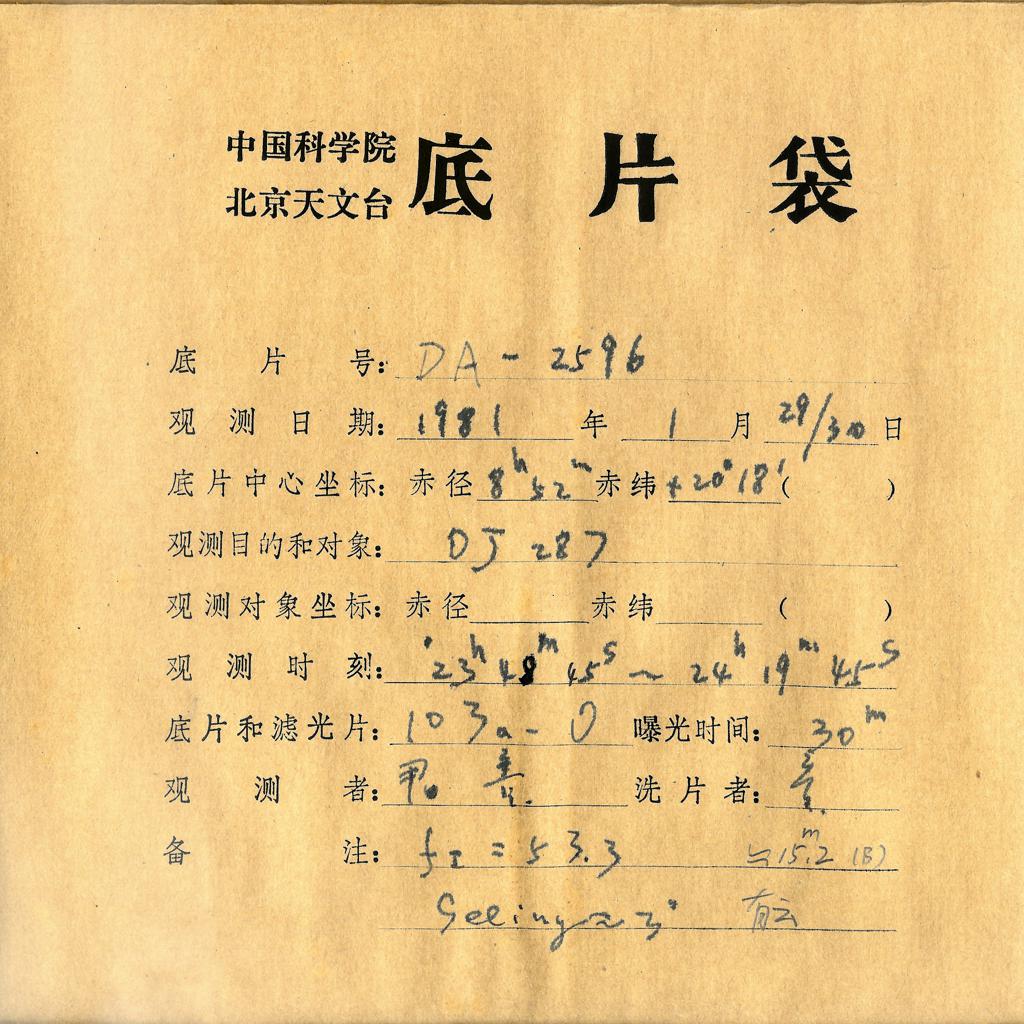 中国科学院
北京天文台 底片袋
底片号: DA - 2596
观测日期: 1981 年 1 月 29/30 日
底片中心坐标: 赤径 8h 52m 赤纬 +20°18′ ( )
观测目的和对象: OJ 287
观测对象坐标: 赤径 赤纬 ( )
观测时刻: 23h 48m 45s ~ 24h 19m 45s
底片和滤光片: 103a-O 曝光时间: 30m
观测者: 洗片者:
备注: = 53.3 15m.2 (B)
Seeing ≈ 3" 有云